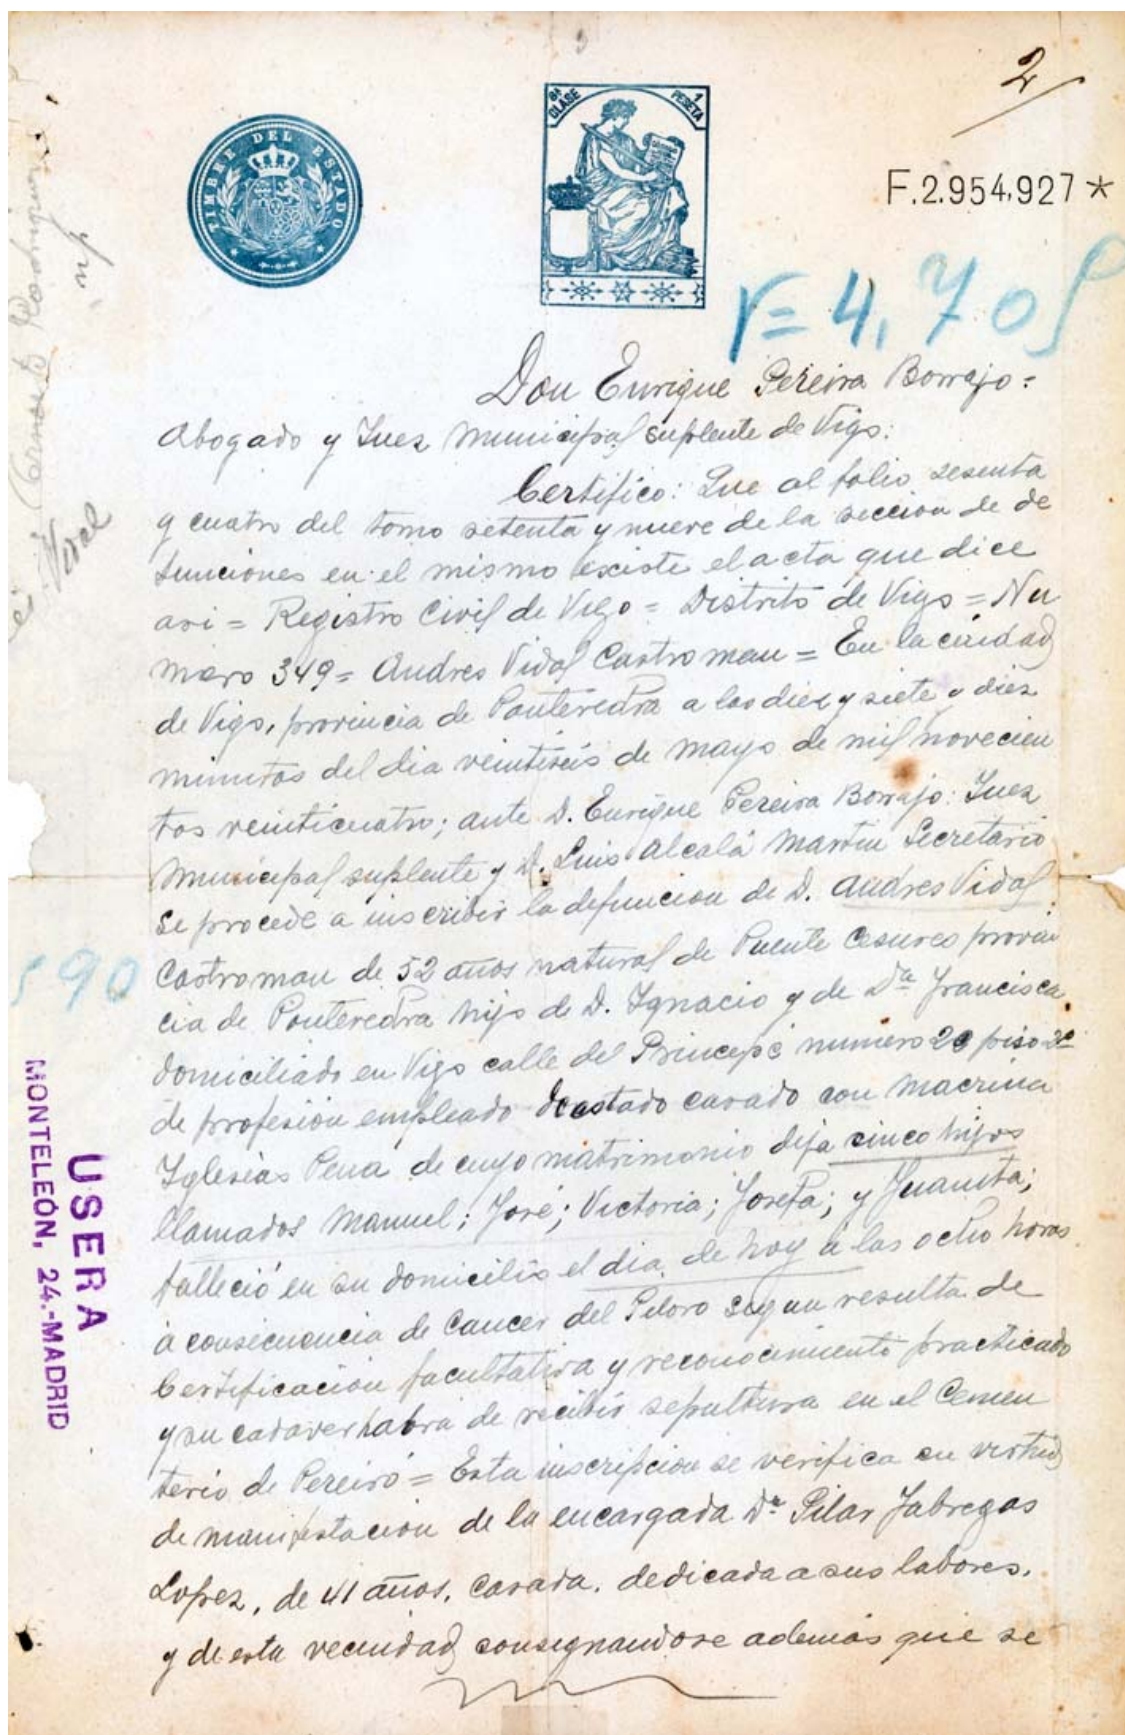 2
TIMBRE DEL ESTADO
8ª CLASE
1 PESETA
F.2.954,927 *
r=4,70
Don Enrique Pereira Borrajo=
Abogado y Juez Municipal suplente de Vigo:
Certifico: Que al folio sesenta
y cuatro del tomo setenta y nueve de la seccion de de
funciones en el mismo existe el acta que dice
asi = Registro Civil de Vigo = Distrito de Vigo = Nu
mero 349= Andres Vidal Castroman = En la ciudad
de Vigo, provincia de Pontevedra a las diez y siete y diez
minutos del dia veintiseis de mayo de mil novecien
tos veinticuatro; ante D. Enrique Pereira Borrajo: Juez
Municipal suplente y D. Luis Alcalá Martin Secretario
se procede a inscribir la defuncion de D. Andres Vidal
Castroman de 52 años natural de Puente Cesures provin
cia de Pontevedra hijo de D. Ignacio y de Dª Francisca,
domiciliado en Vigo calle del Principe numero piso 2º
de profesión empleado de estado casado con Macrina
Iglesias Pena de cuyo matrimonio deja cinco hijos
llamados Manuel; José; Victoria; Josefa; y Juanita;
falleció en su domicilio el dia de hoy á las ocho horas
á consecuencia de Cancer del Piloro segun resulta de
Certificación facultativa y reconocimiento practicado
y su cadaver habra de recibir sepultura en el Cemen
terio de Pereiró = Esta inscripcion se verifica en virtud
de manifestacion de la encargada Dª Pilar Fabregas
Lopez, de 41 años, casada, dedicada a sus labores,
y de esta vecindad consignandose además que se
90
USERA
MONTELEÓN, 24.-MADRID